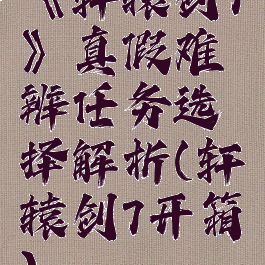 《轩辕剑7
》真假难
辨任务选
择解析(轩
辕剑7开箱
)